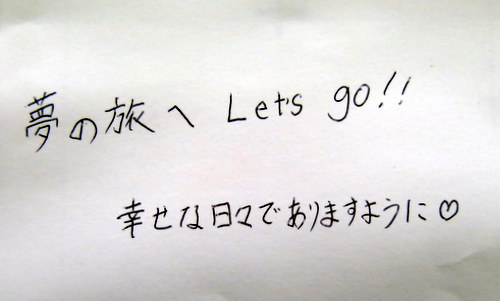 夢の旅へ Let's go!!
幸せな日々でありますように♡